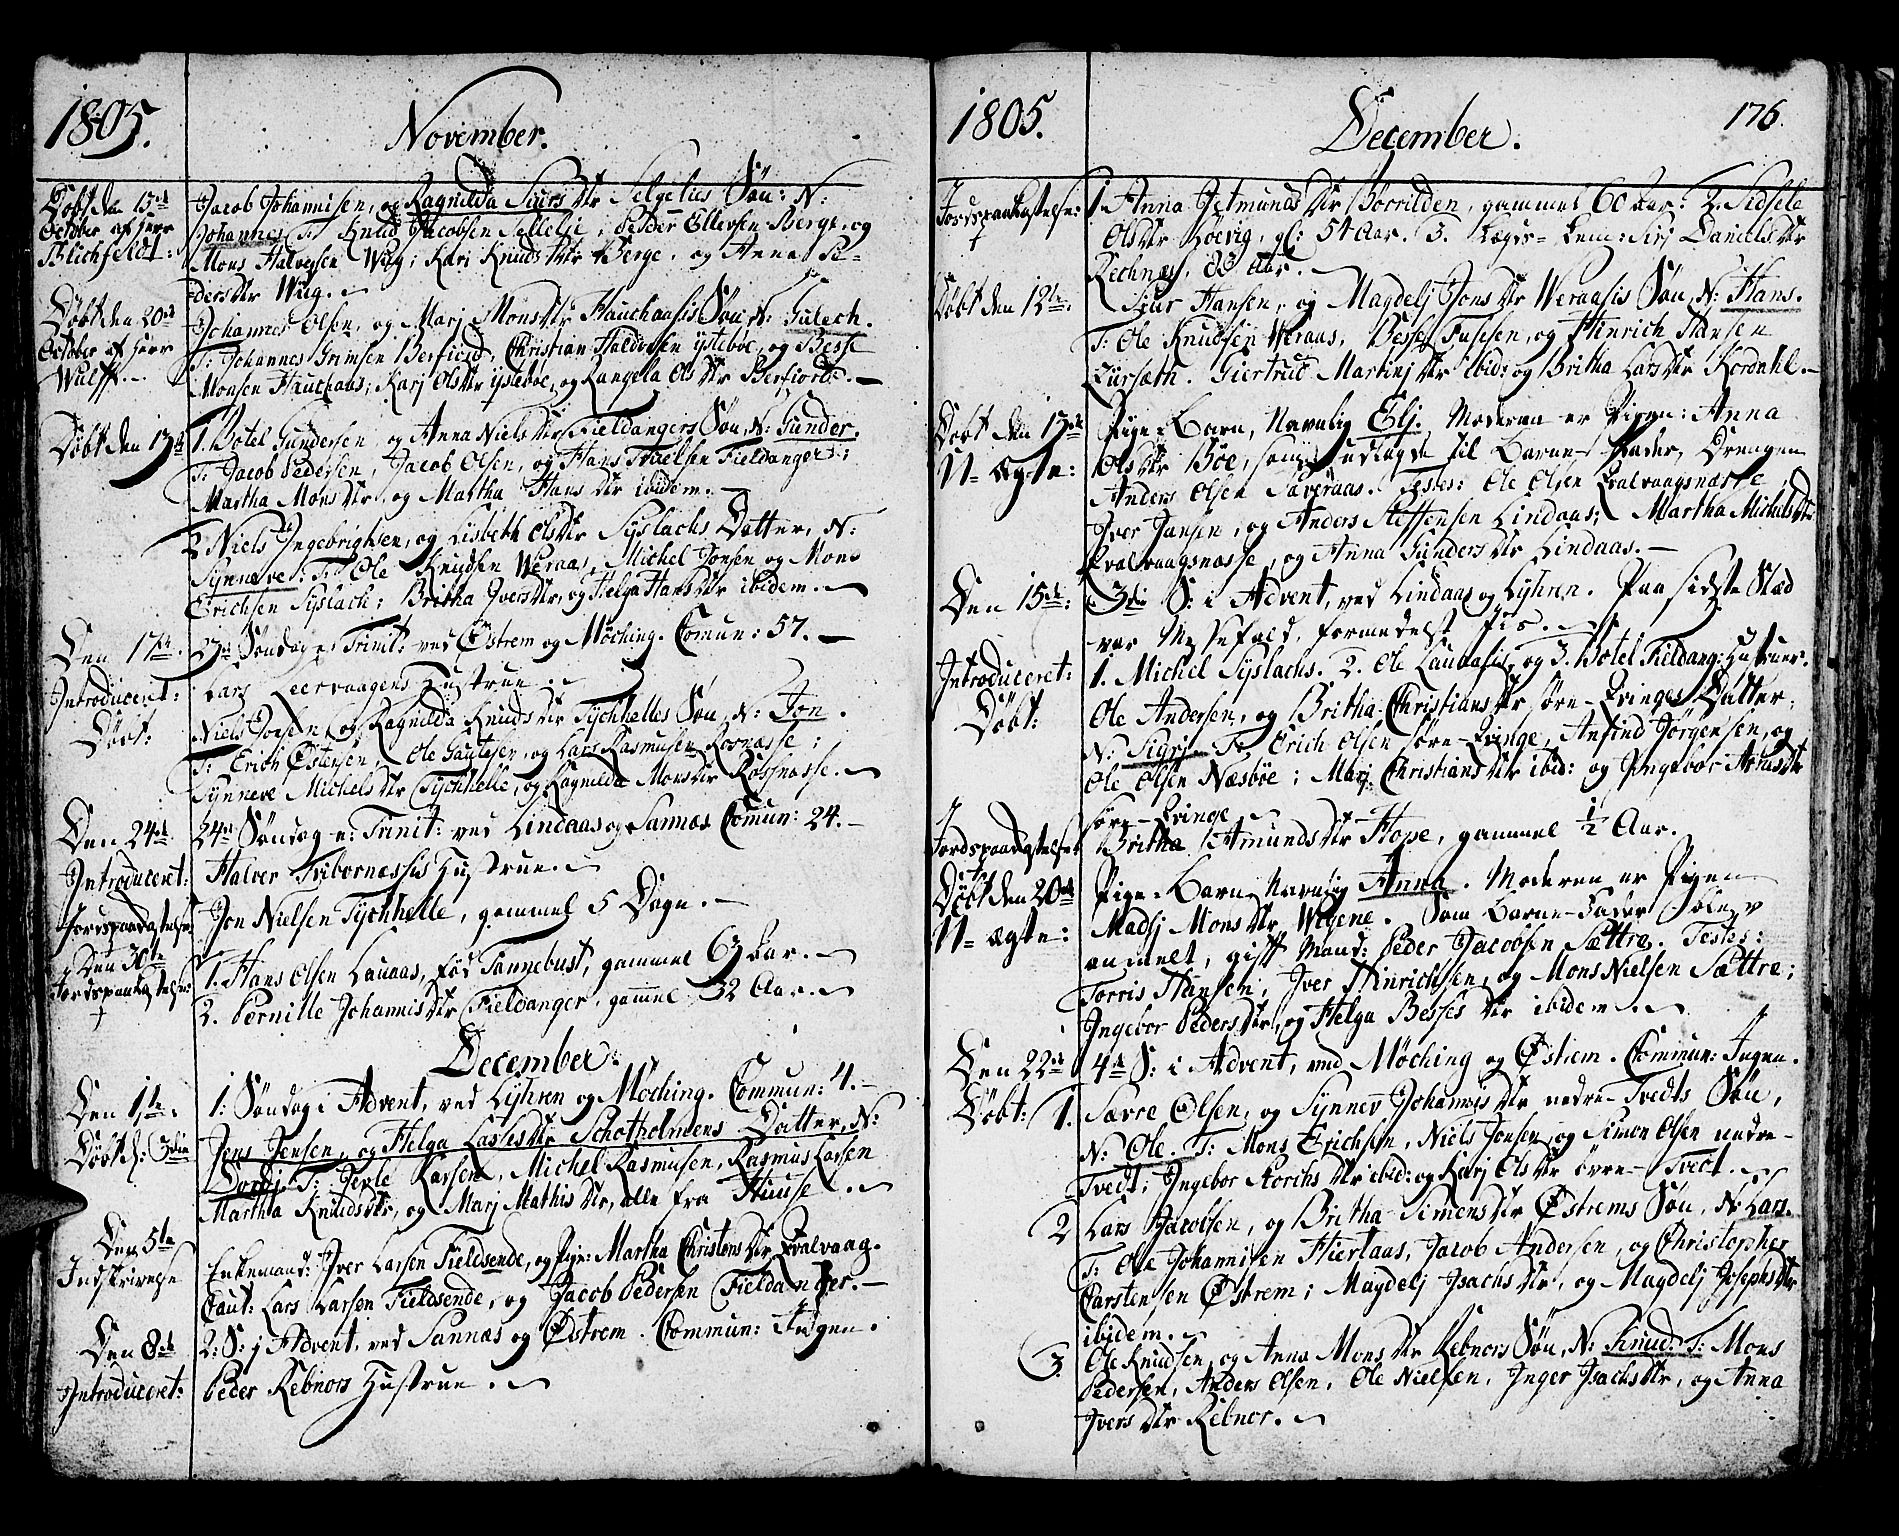 1805.
November.
Döbt den 13de
October af Herr
Blichfeldt.
Jacob Johannisen, og Ragnilda Siurs Dtr Selgelies Søn: N:
Johannes. T: Knud Jacobsen Sellelie, Peder Ellersen Berge, og
Mons Halversen Wiig; Kari Knuds Dtr Berge, og Anna Pe-
ders Dtr Wiig.
Döbt den 20de
October af Herr
Wulff.
Johannes Olsen, og Marj Mons Dtr Hauchaasis Søn, N: Gulech.
T: Johannes Grimsen Berfiord, Christian Haldorsen ystebøe, og Besse
Monsen Hauchaas; Karj Ols Dtr ystebøe, og Rangela Ols Dtr Berfiord.
Döbt den 13de
1. Botel Gundersen, og Anna Niels Dtr Fieldangers Søn, N: Gunder.
T: Jacob Pedersen, Jacob Olsen, og Hans Fieldanger;
Martha Mons Dtr, og Martha Hans Dtr ibidem.
2 Niels Ingebrigtsen, og Lisbeth Ols Dtr Syslachs Datter, N:
Synneve. T: Ole Knudsen Weraas, Michel Jonsen og Mons
Erichsen Syslach; Britha Ivers Dtr, og Helga Hans Dtr ibidem.
Den 17de.
23de Søndag e: Trinit: ved Østrem og Møching. Comun: 57.
Introduceret:
Lars Leervaagens Hustrue.
Döbt:
Niels Joesen, og Ragnilda Knuds Dtr Tychhelles Søn, N: Jon.
T: Erich Østensen, Ole Gautesen, og Lars Rasmusen Rosnasse;
Synneve Michels Dtr Tychhelle, og Ragnilda Mons Dtr Rossnasse.
Den 24de.
24de Søndag e: Trinit: ved Lindaas og Sannæs Comun: 24.
Introduceret:
Halver Fribornæssis Hustrue.
Jordspaakastelse
Jon Nielsen Tychhelle, gammel 5 Dage.
Den 30te
Jordspaakastelse:
1. Hans Olsen Lauaas, fød Tannebust, gammel 63 Aar.
2. Pernille Johannis Dtr Fieldanger, gammel 32 Aar.
December:
Den 1te.
1: Søndag i Advent, ved Lyhren og Møching. Commun: 4.
Döbt d: 3die
Jens Jensen, og Helga Lasses Dtr Schotholmens Datter, N:
Dordj. T: Jerle Larsen, Michel Rasmusen, Rasmus Larsen
Martha Knuds Dtr, og Marj Mathis Dtr, alle fra Hiuse.
Den 5te
Indskrivelse
Enkemand: Iver Larsen Fieldsende, og Pige: Martha Christens Dtr Qvalvaag.
Caut: Lars Larsen Fieldsende, og Jacob Pedersen Fieldanger.
Den 8de
2: S: j Advent, ved Sannæs og Østrem. Commun: Ingen.
Introduceret:
Peder Rebnors Hustrue.
1805.
December.
176.
Jordspaakastelse:
1. Anna Jetmunds Dtr Börrilden, gammel 60 Aar. 2. Sidsele
Ols Dtr Høevig, gl: 54 Aar. 3. Lægis-Lem: Sirj Daniels Dtr
Rechness, 83 Aar.
Döbt den 12te.
Siur Hansen, og Magdelj Jons Dtr Weraasis Søn, N: Hans.
T: Ole Knudsen Weraas, Besse Fusesen, og Hinrich Hansen
Lursætn. Giertrud Martinj Dtr ibid: og Britha Lars Dtr Kordahl.
Döbt den 13de
U-ægte:
Pige-Barn, Navnlig Elj. Moderen er Pigen: Anna
Ols Dtr Bøe, som udlagde til Barne-Fader, Drengen
Anders Olsen Saveraas. Testes: Ole Olsen Qvalvaagsnæsse,
Iver Jansen, og Anders Steffensen Lindaas; Martha Michels Dtr
Qvalvaagsnasse, og Anna Gunders Dtr Lindaas.
Den 15de:
3die S: i Advent, ved Lindaas og Lyhren. Paa sidste Stæd
var Messefald, formedelst Iis.
Introduceret:
1. Michel Syslachs. 2. Ole Lauaasis, og 3. Botel Fieldang: Hustruer.
Döbt:
Ole Andersen, og Britha Christians Dtr søre-Qvinges Datter,
N: Sigrj. T: Erich Olsen søre-Qvinge, Anfind Jørgensen, og
Ole Olsen Næsbøe; Marj Christians Dtr ibid: og Ingebor Arnes Dtr
søre-Qvinge
Jordspaakastelse
Britha Amunds Dtr Hope, gammel ½ Aar.
Döbt den 20de
U-ægte:
Pige-Barn Navnlig Anna. Moderen er Pigen
Madlj Mons Dtr Wegene. Som Barne-Fader blev
anmelt, gift Mand: Peder Jacobsen Sættre. Testes:
Torris Hansen, Iver Hinrichsen, og Mons Nielsen Sættre;
Ingebor Peders Dtr, og Helga Besses Dtr ibidem.
Den 22de
4de S: i Advent, ved Møching og Østrem. Commun: Ingen.
Döbt: 1.
Sævre Olsen, og Synnev Johannis Dtr nedre-Tvedts Søn,
N: Ole. T: Mons Erichsen, Niels Jonsen, og Simon Olsen nedre-
Tvedt, Ingebor Dtr ibid: og Karj Ols Dtr övre-Tvedt.
2
Lars Jacobsen, og Britha Simens Dtr Østrems Søn, N: Lars.
T: Ole Johannisen Hiertaas, Jacob Andersen, og Christopher
Carstensen Østrem; Magdelj Isachs Dtr, og Magdelj Josephs Dtr
ibidem.
3.
Ole Knudsen, og Anna Mons Dtr Rebnors Søn, N: Knud. T: Mons
Pedersen, Anders Olsen, Ole Nielsen, Inger Isachs Dtr, og Anna
Ivers Dtr Rebnor.